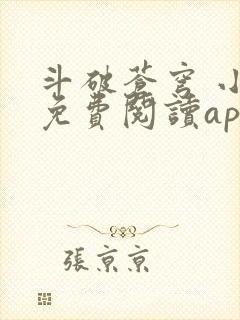 斗破蒼穹 小
免費閱讀ap
張京京